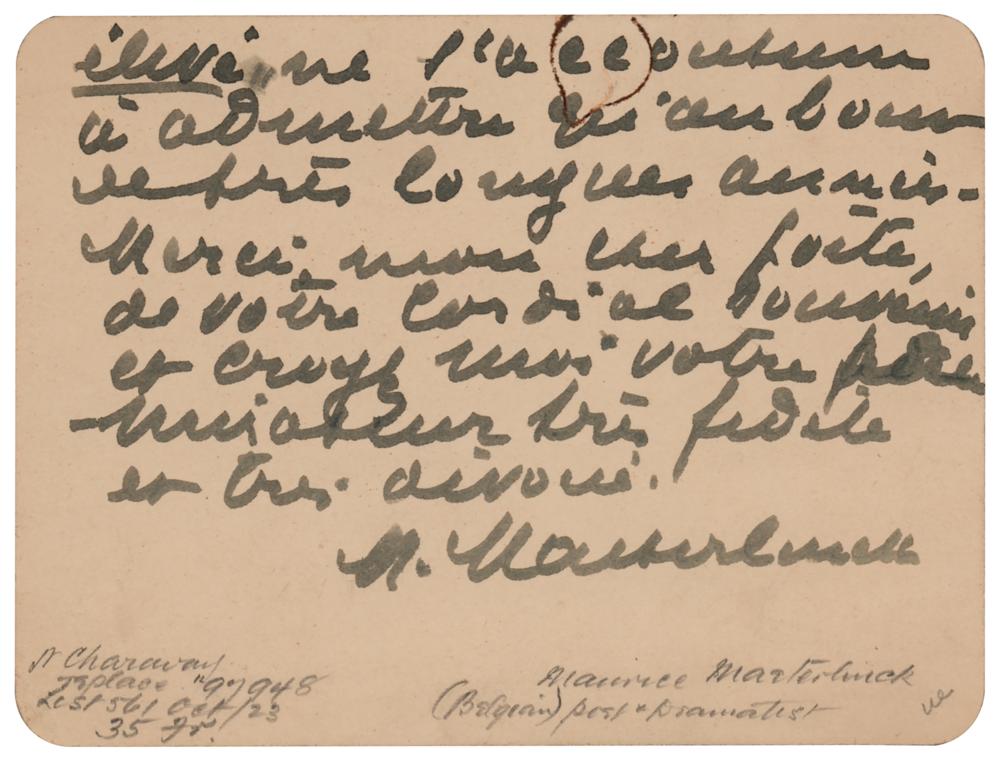 élevé, ne s'accoutume
à admettre qu'au bout
de très longues années.
Merci, mon cher poète,
de votre cordial souvenir
et croyez moi votre
très fidèle
et très dévoué.
M. Maeterlinck
N Charavay
replace "97948
List 561 Oct/23
35 fr.
Maurice Maeterlinck
(Belgian) poet & Dramatist